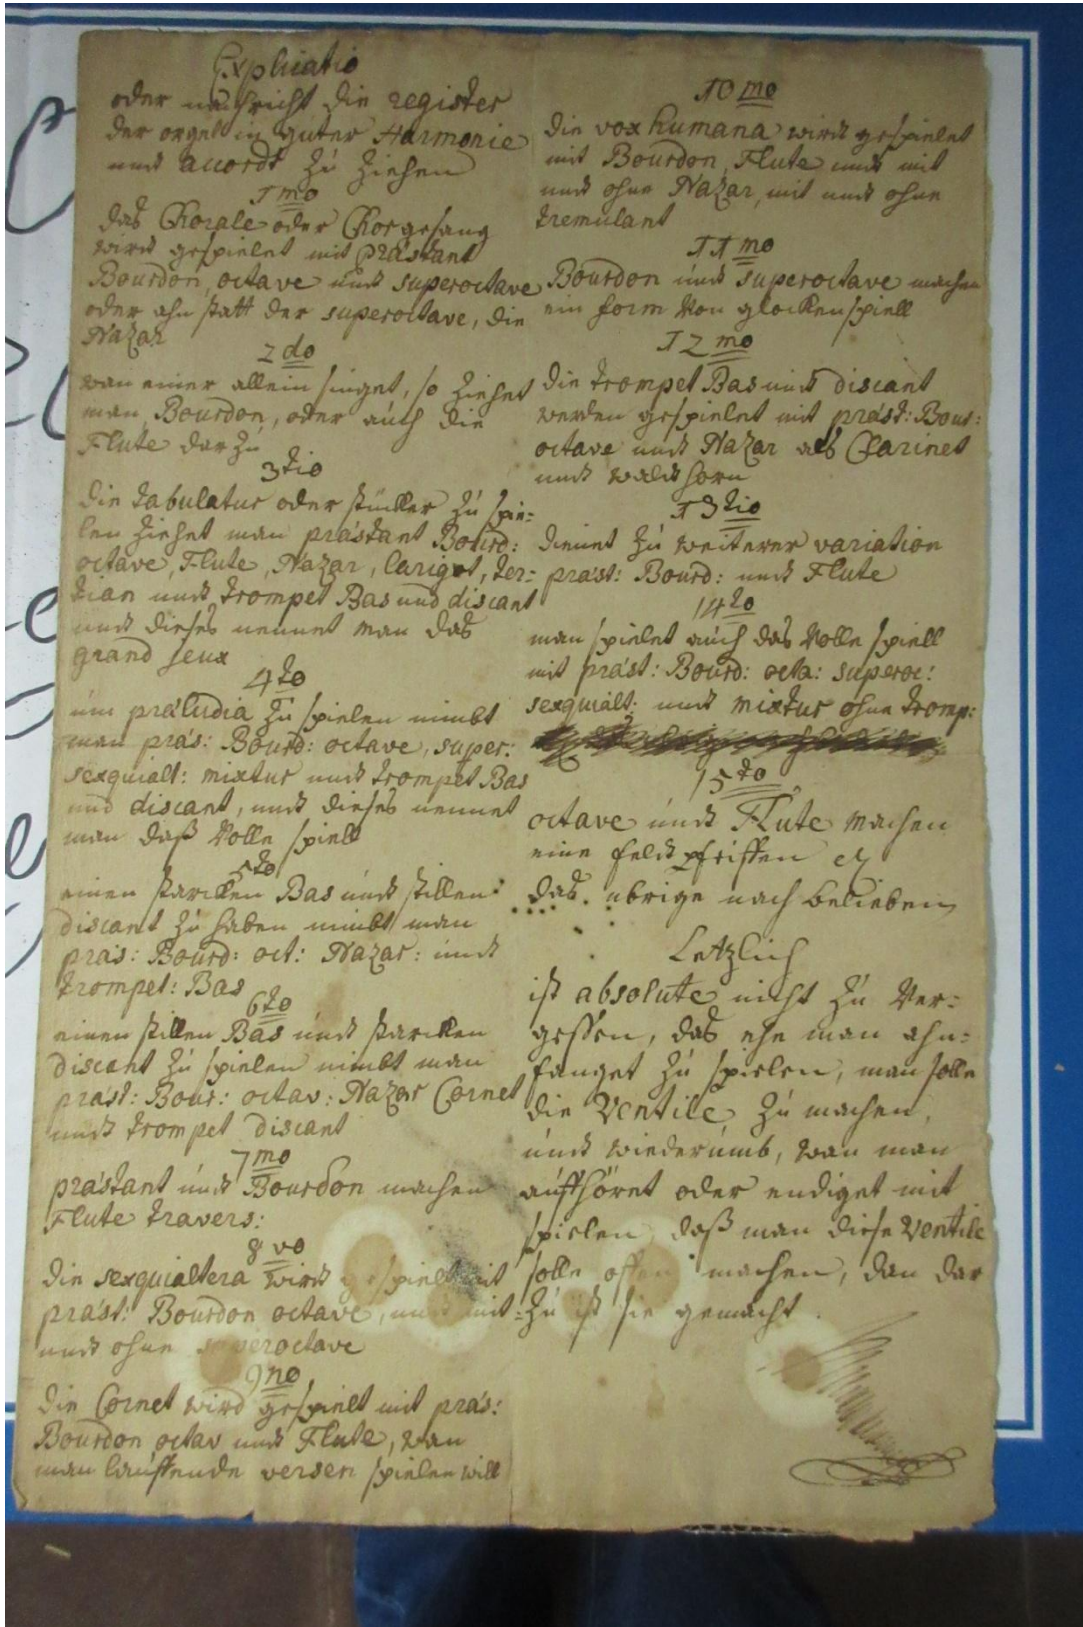 Explicatio
oder nachricht die register
der orgel in guter Harmonie
und accordt zu ziehen
1mo
das Chorale oder Chorgesang
wird gespielet mit Præstant
Bourdon, octave und superoctave
oder ahn statt der superoctave, die
Nazar
2do
wan einer allein singet, so ziehet
man Bourdon, oder auch die
Flute darzu
3tio
die tabulatur oder stücker zu spie=
len ziehet man præstant Bourd:
octave, Flute, Nazar, Carigot, ter=
tian und trompet Bas und discant
und dieses nennet man das
grand jeux
4to
um præludia zu spielen nimbt
man præs: Bourd: octave, super:
sexquialt: mixtur und trompet Bas
und discant, und dieses nennet
man daß Volle spiell
5to
einen starcken Bas und stillen
discant zu haben nimbt man
præs: Bourd: oct: Nazar: und
trompet: Bas
6to
einen stillen Bas und starcken
discant zu spielen nimbt man
præst: Bour: octav: Nazar Cornet
und trompet discant
7mo
præstant und Bourdon machen
Flute travers:
8vo
die sexquialtera wird gespielt mit
præst: Bourdon octave, und mit
und ohne superoctave
9no
die Cornet wird gespielt mit præs:
Bourdon octav und Flute, wan
man lauffende versen spielen will
10mo
die vox humana wird gespielet
mit Bourdon, Flute und mit
und ohne Nazar, mit und ohne
tremulant
11mo
Bourdon und superoctave machen
ein form Von glockenspiell
12mo
die trompet Bas und discant
werden gespielet mit præst: Bour:
octave und Nazar als Clarinet
und waldhorn
13tio
dienet zu weiterer variation
præst: Bourd: und Flute
14to
man spielet auch das Volle spiell
mit præst: Bourd: octa: superoc:
sexquialt: und mixtur ohne tromp:
15to
octave und Flute machen
eine feldt pfeiffen
das übrige nach belieben
Letzlich
ist absolute nicht zu Ver=
gessen, das ehe man ahn=
fanget zu spielen, man solle
die Ventile zu machen,
und wiederumb, wan man
auffhöret oder endiget mit
spielen daß man diese Ventile
solle offen machen, dan dar
=zu ist sie gemacht.